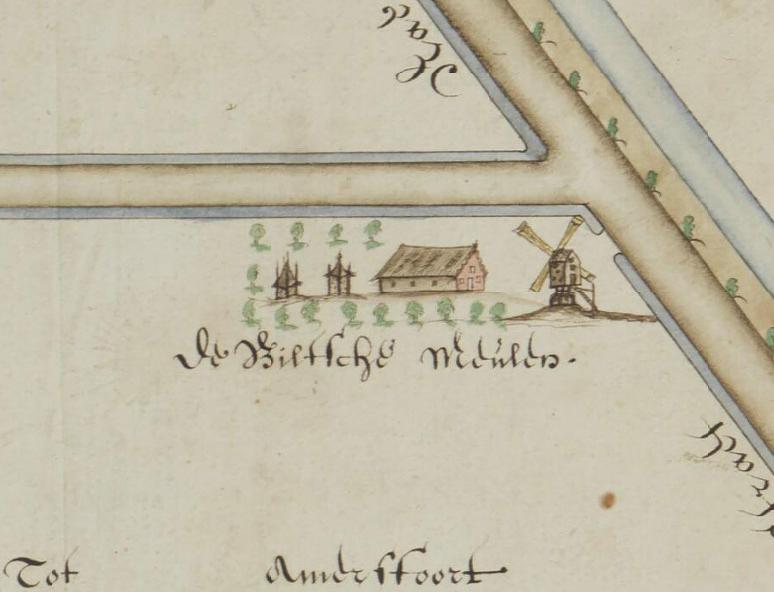 De Biltsche Meulen.
Tot Amersfoort